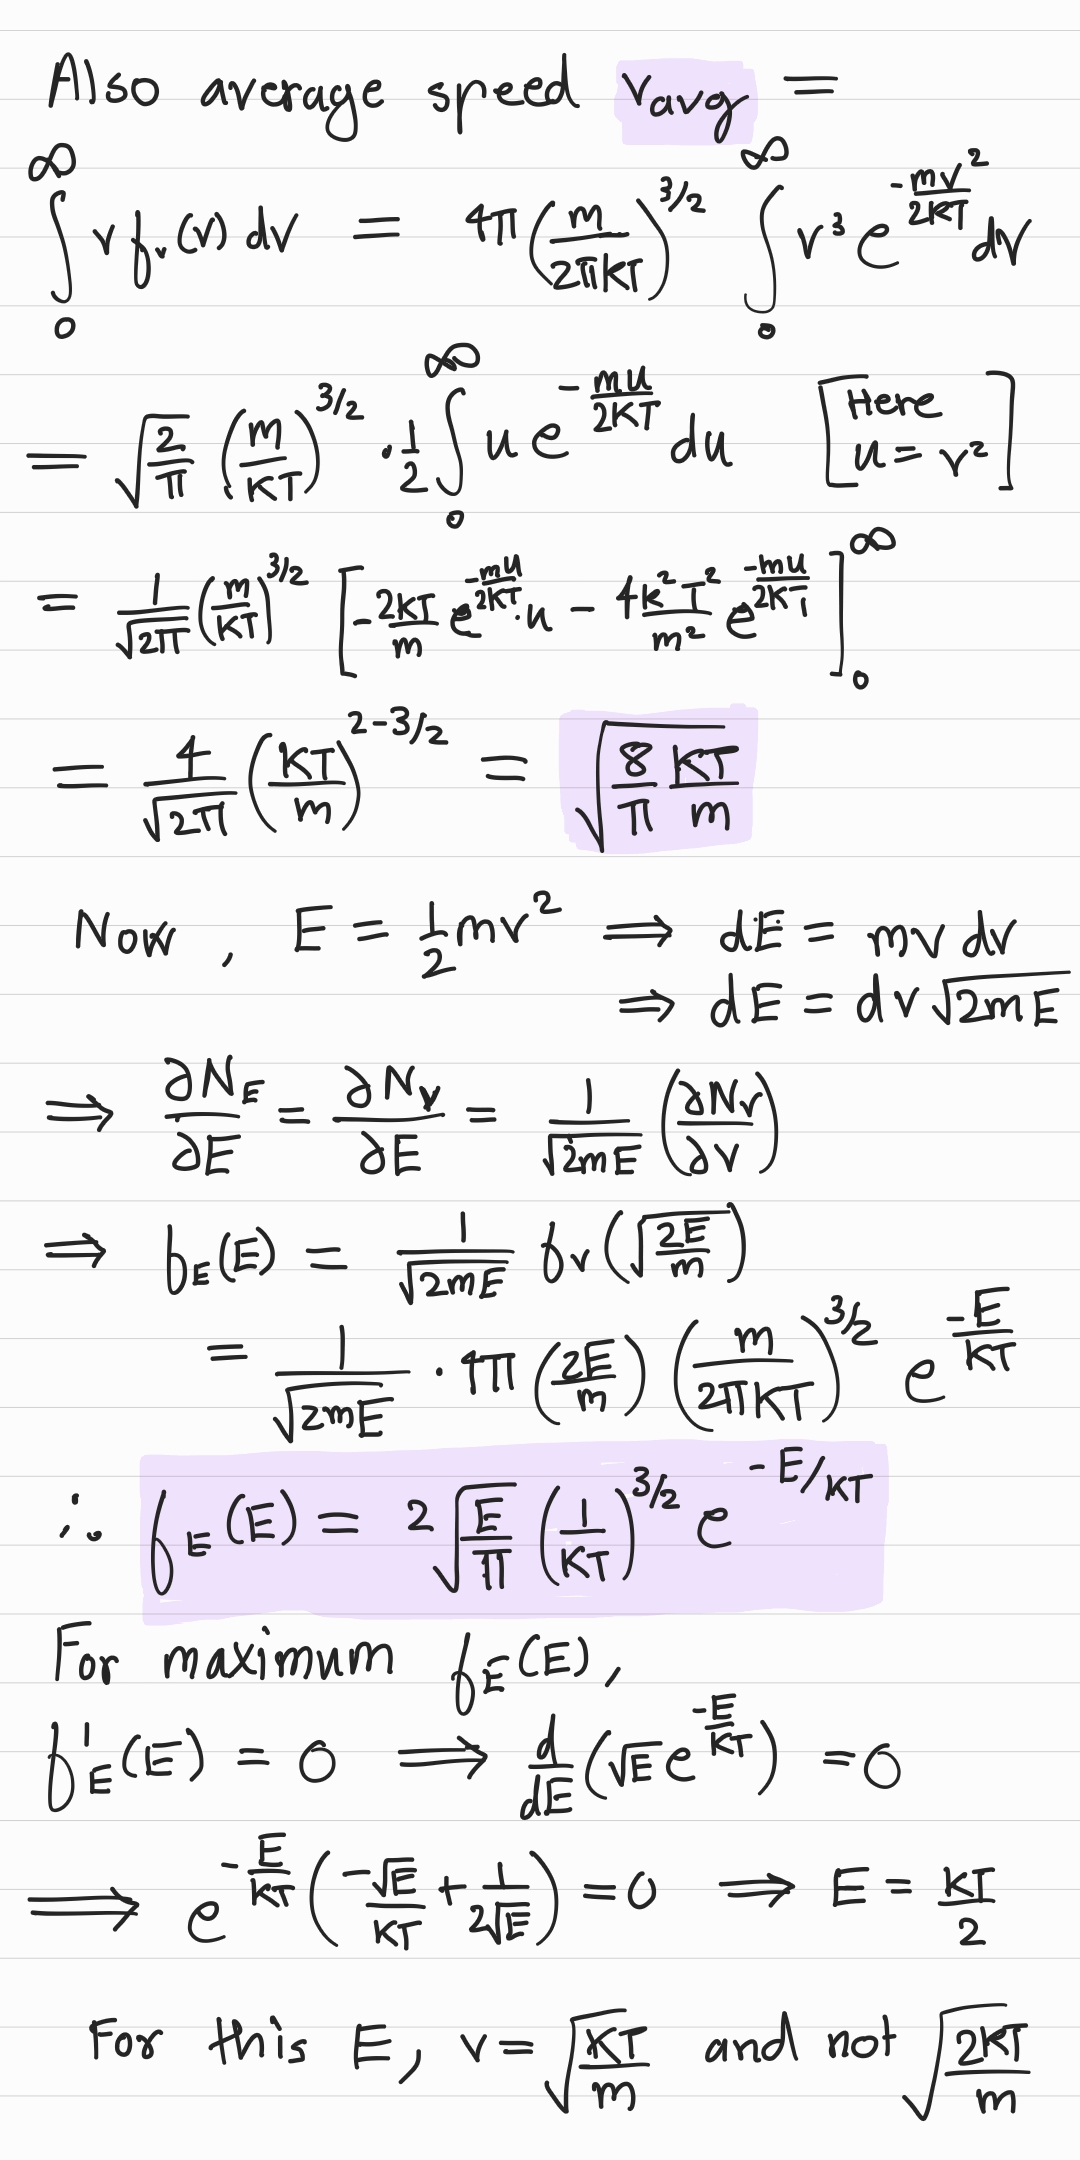 Also average speed v_avg =
∫₀^∞ v f_v(v) dv = 4π (m/2πKT)^{3/2} ∫₀^∞ v³ e^{-mv²/2KT} dv
= √(2/π) (m/KT)^{3/2} · 1/2 ∫₀^∞ u e^{-mu/2KT} du [Here u = v²]
= 1/√(2π) (m/KT)^{3/2} [-2KT/m e^{-mu/2KT} · u - 4K²T²/m² e^{-mu/2KT}]₀^∞
= 4/√(2π) (KT/m)^{2-3/2} = √(8/π KT/m)
Now, E = 1/2 mv² ⟹ dE = mv dv
⟹ dE = dv √(2mE)
⟹ ∂N_E/∂E = ∂N_v/∂E = 1/√(2mE) (∂N_v/∂v)
⟹ f_E(E) = 1/√(2mE) f_v(√(2E/m))
= 1/√(2mE) · 4π (2E/m) (m/2πKT)^{3/2} e^{-E/KT}
∴ f_E(E) = 2√(E/π) (1/KT)^{3/2} e^{-E/KT}
For maximum f_E(E),
f'_E(E) = 0 ⟹ d/dE (√E e^{-E/KT}) = 0
⟹ e^{-E/KT} (-√E/KT + 1/2√E) = 0 ⟹ E = KT/2
For this E, v = √(KT/m) and not √(2KT/m)